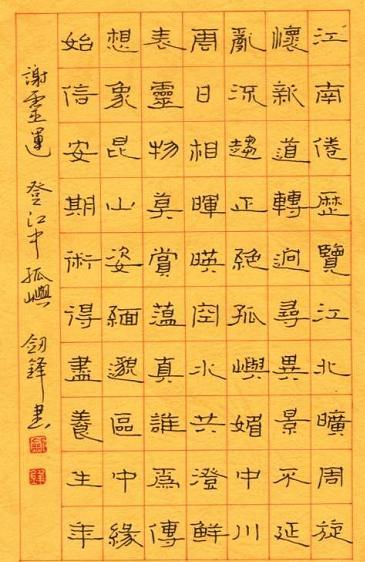 江南倦歷覽江北曠周旋
懷新道轉迥尋異景不延
亂流趨正絕孤嶼媚中川
周日相暉暎空水共澄鮮
表靈物莫賞薀真誰爲傳
想象昆山姿緬邈區中緣
始信安期術得盡養生年
謝靈運 登江中孤嶼 劒鋒書